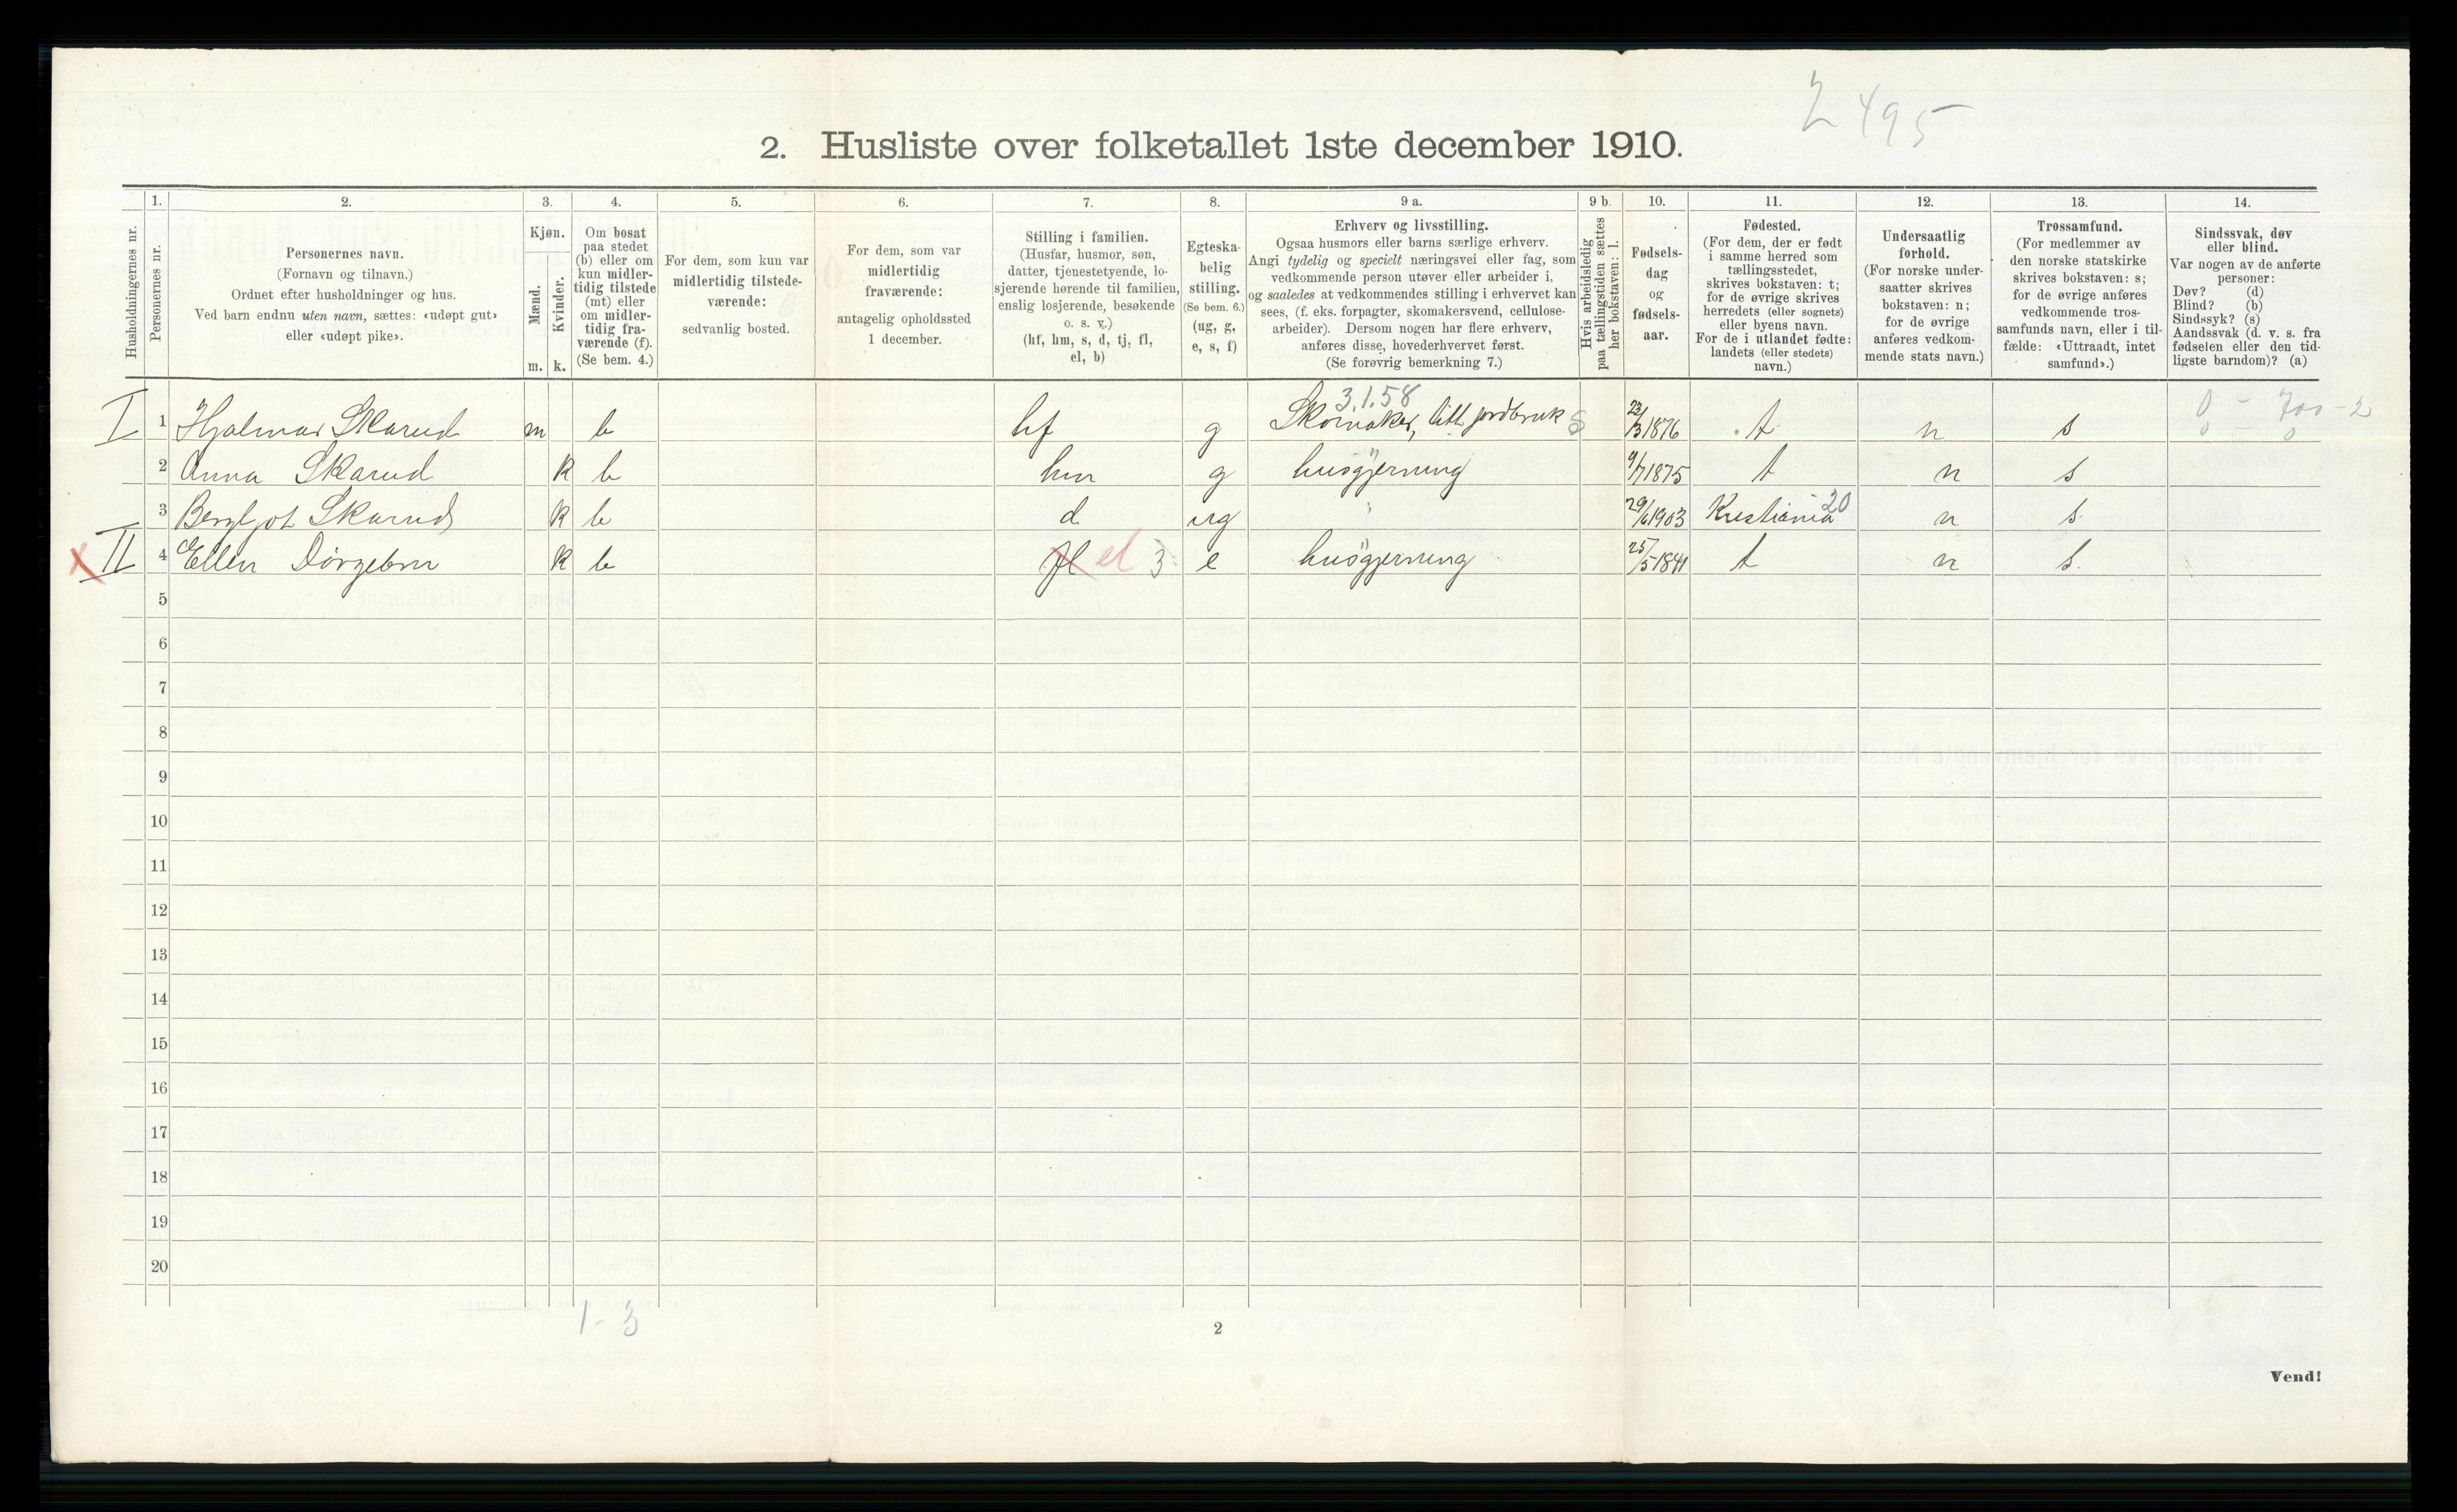 2 495
2. Husliste over folketallet 1ste december 1910.
Husholdningernes nr.
1. Personernes nr.
2. Personernes navn.
(Fornavn og tilnavn.)
Ordnet efter husholdninger og hus.
Ved barn endnu uten navn, sættes: «udøpt gut»
eller «udøpt pike».
3. Kjøn.
Mænd. Kvinder.
m. k.
4. Om bosat
paa stedet
(b) eller om
kun midler-
tidig tilstede
(mt) eller
om midler-
tidig fra-
værende (f).
(Se bem. 4.)
5. For dem, som kun var
midlertidig tilstede-
værende:
sedvanlig bosted.
6. For dem, som var
midlertidig
fraværende:
antagelig opholdssted
1 december.
7. Stilling i familien.
(Husfar, husmor, søn,
datter, tjenestetyende, lo-
sjerende hørende til familien,
enslig losjerende, besøkende
o. s. v.)
(hf, hm, s, d, tj, fl,
el, b)
8. Egteska-
belig
stilling.
(Se bem. 6.)
(ug, g,
e, s, f)
9 a. Erhverv og livsstilling.
Ogsaa husmors eller barns særlige erhverv.
Angi tydelig og specielt næringsvei eller fag, som
vedkommende person utøver eller arbeider i,
og saaledes at vedkommendes stilling i erhvervet kan
sees, (f. eks. forpagter, skomakersvend, cellulose-
arbeider). Dersom nogen har flere erhverv,
anføres disse, hovederhvervet først.
(Se forøvrig bemerkning 7.)
9 b. Hvis arbeidsledig
paa tællingstiden sættes
her bokstaven: l.
10. Fødsels-
dag
og
fødsels-
aar.
11. Fødested.
(For dem, der er født
i samme herred som
tællingsstedet,
skrives bokstaven: t;
for de øvrige skrives
herredets (eller sognets)
eller byens navn.
For de i utlandet fødte:
landets (eller stedets)
navn.)
12. Undersaatlig
forhold.
(For norske under-
saatter skrives
bokstaven: n;
for de øvrige
anføres vedkom-
mende stats navn.)
13. Trossamfund.
(For medlemmer av
den norske statskirke
skrives bokstaven: s;
for de øvrige anføres
vedkommende tros-
samfunds navn, eller i til-
fælde: «Uttraadt, intet
samfund».)
14. Sindssvak, døv
eller blind.
Var nogen av de anførte
personer:
Døv? (d)
Blind? (b)
Sindssyk? (s)
Aandssvak (d. v. s. fra
fødselen eller den tid-
ligste barndom)? (a)
3.1.58 0 - 700 - 2
I 1 Hjalmar Skarud m b hf g Skomaker, litt jordbruk 23/3 1876 t n s 0 - 0
2 Anna Skarud k b hm g husgjerning 9/7 1875 t n s
3 Bergljot Skarud k b d ug 29/6 1903 Kristiania 20 n s
X II 4 Ellen k b fl el 3 e husgjerning 25/5 1841 t n s.
5
6
7
8
9
10
11
12
13
14
15
16
17
18
19
20
1 - 3
2
Vend!